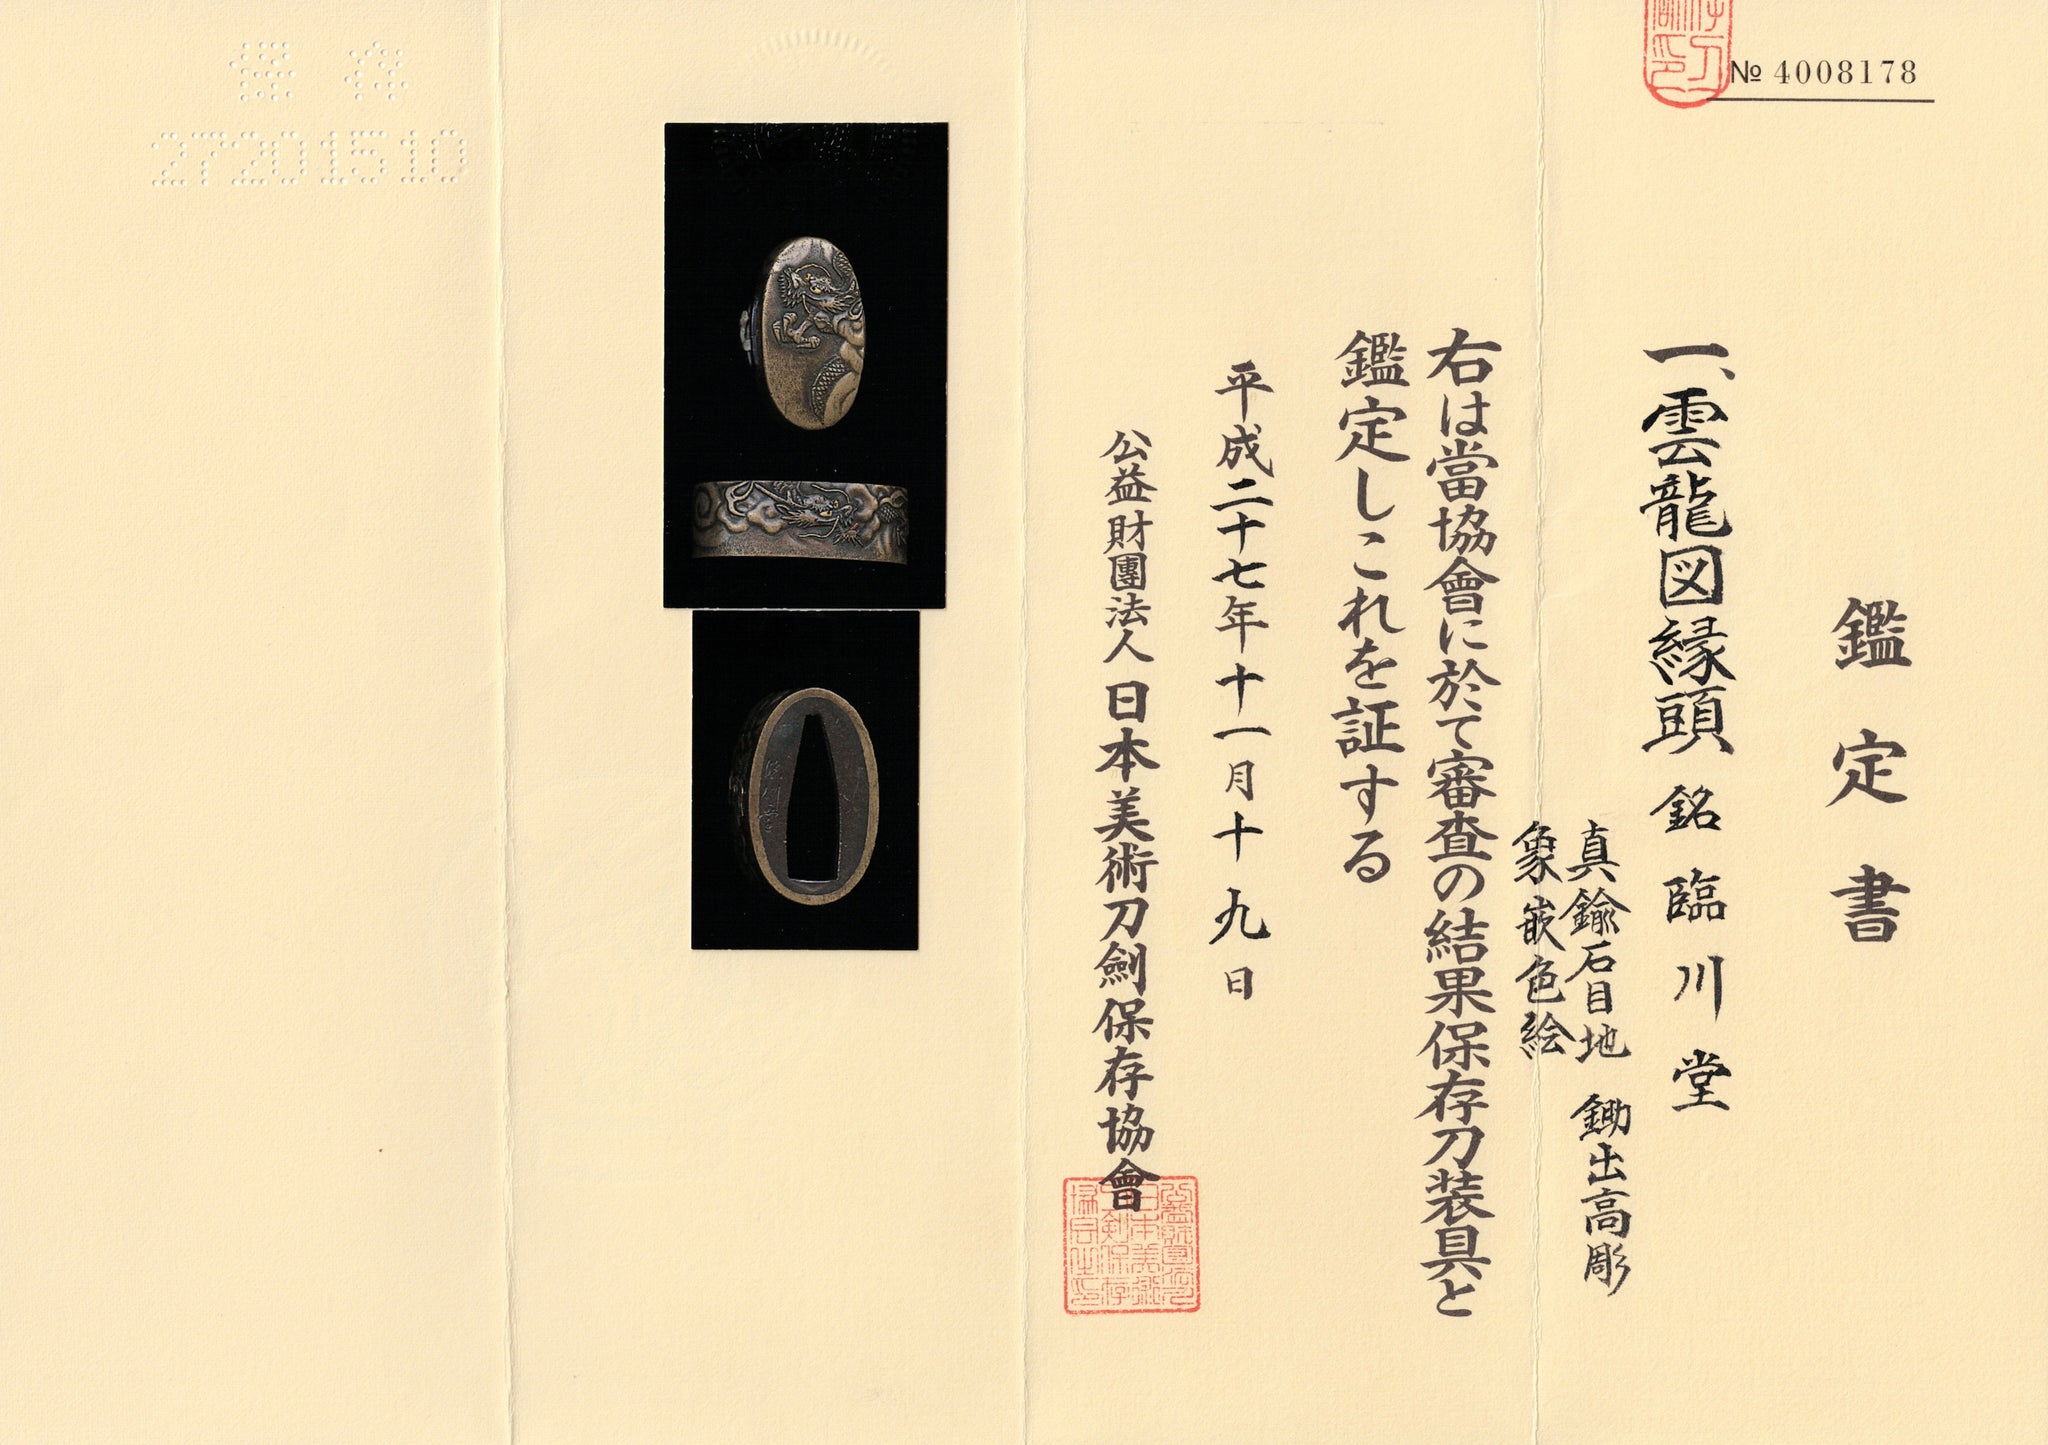 № 4008178
鑑定書
一、雲龍図縁頭 銘 臨川堂
真鍮石目地 鋤出高彫
象嵌色絵
右は當協會に於て審査の結果保存刀装具と
鑑定しこれを証する
平成二十七年十一月十九日
公益財團法人 日本美術刀劍保存協會
保存
27201510